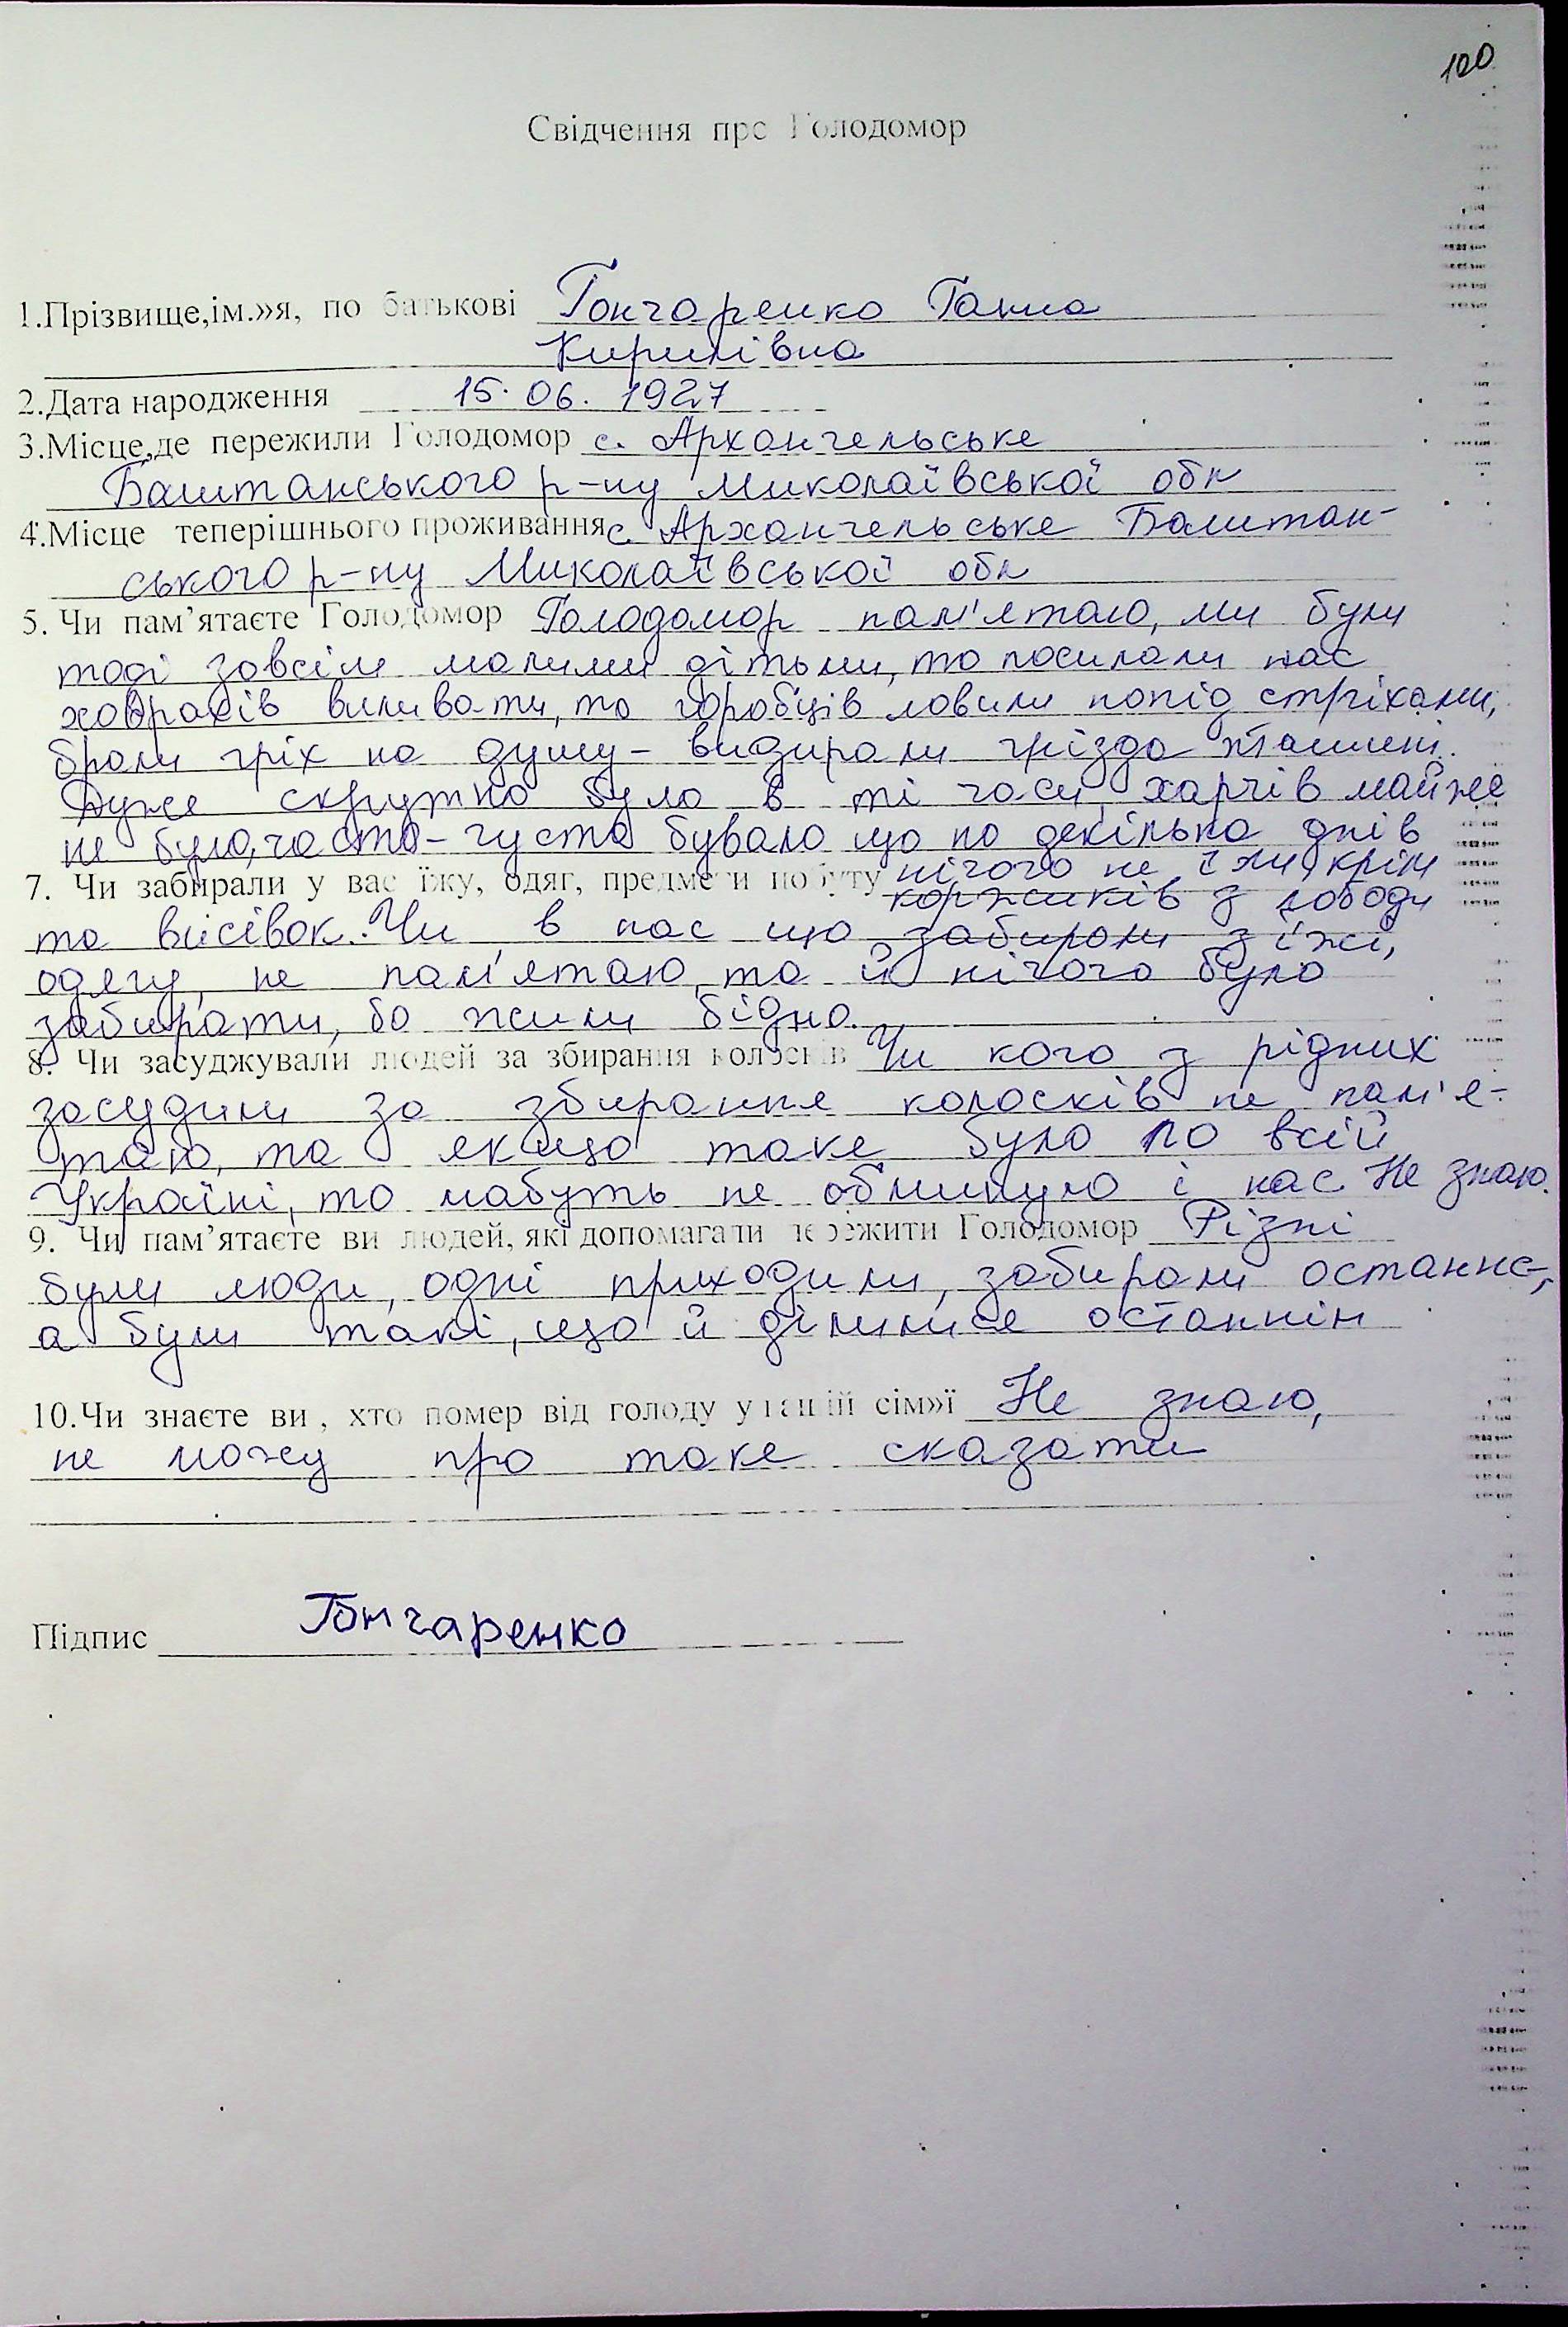 120
Свідчення про Голодомор
1.Прізвище,ім.»я, по батькові Гончаренко Ганна
Кирилівна
2.Дата народження 15. 06. 1927
3.Місце,де пережили Голодомор с. Архангельське
Баштанського р-ну Миколаївської обл
4.Місце теперішнього проживання с. Архангельське Баштан-
ського р-ну Миколаївської обл
5. Чи пам’ятаєте Голодомор Голодомор пам'ятаю, ми були
тоді зовсім малими дітьми, то посилали нас
ховрахів виливати, то горобців ловили попід стріхами,
брали гріх на душу - видирали гнізда пташині.
Дуже скрутно було в ті часи, харчів майже
не було, часто-густо бувало що по декілька днів
7. Чи забирали у вас їжу, одяг, предмети побуту нічого не їли, крім
коржиків з лободи
та висівок. Чи в нас що забирали з їжі,
одягу, не пам'ятаю, та й нічого було
забирати, бо жили бідно.
8. Чи засуджували людей за збирання колосків Чи кого з рідних
засудили за збирання колосків не пам'я-
таю, та якщо таке було по всій
Україні, то мабуть не обминуло і нас Не знаю.
9. Чи пам’ятаєте ви людей, які допомагали пережити Голодомор Різні
були люди, одні приходили, забирали останнє,
а були такі, що й ділилися останнім
10.Чи знаєте ви , хто помер від голоду у вашій сім»ї Не знаю,
не можу про таке сказати
Підпис Гончаренко